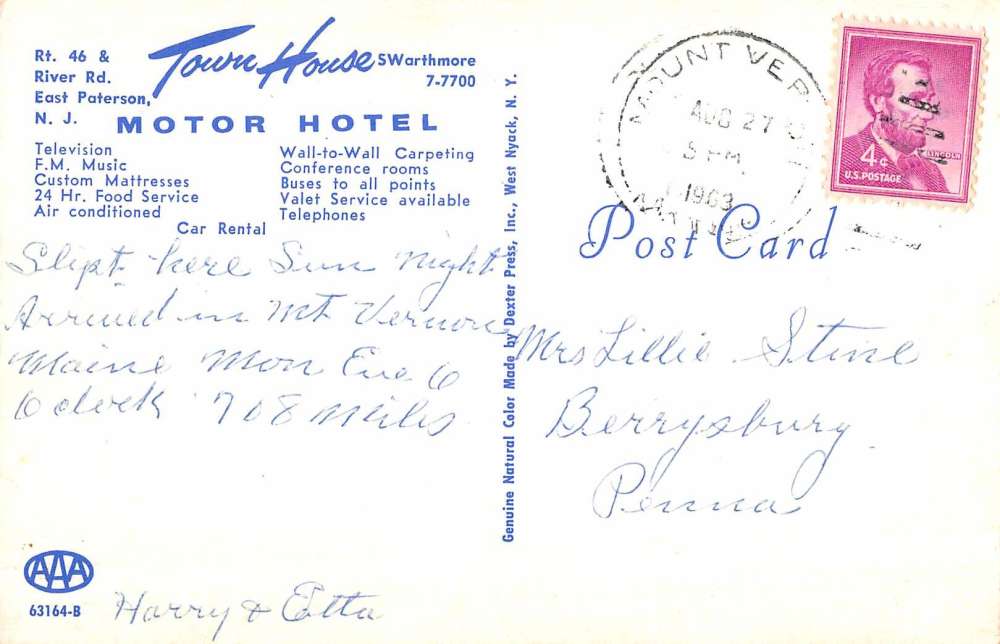 Rt. 46 &
River Rd.
East Paterson,
N. J.
Town House
SWarthmore
7-7700
MOTOR HOTEL
Television
F.M. Music
Custom Mattresses
24 Hr. Food Service
Air conditioned
Wall-to-Wall Carpeting
Conference rooms
Buses to all points
Valet Service available
Telephones
Car Rental
Slipt here Sun night
Arrived in Mt Vernon
Maine Mon Eve 6
O clock 708 Miles
Harry & Etta
AAA
63164-B
Genuine Natural Color Made by Dexter Press, Inc., West Nyack, N. Y.
MOUNT VER
AUG 27
5 PM
1963
4¢
LINCOLN
U.S. POSTAGE
Post Card
Mrs Lillie Stine
Berrysburg
Penna